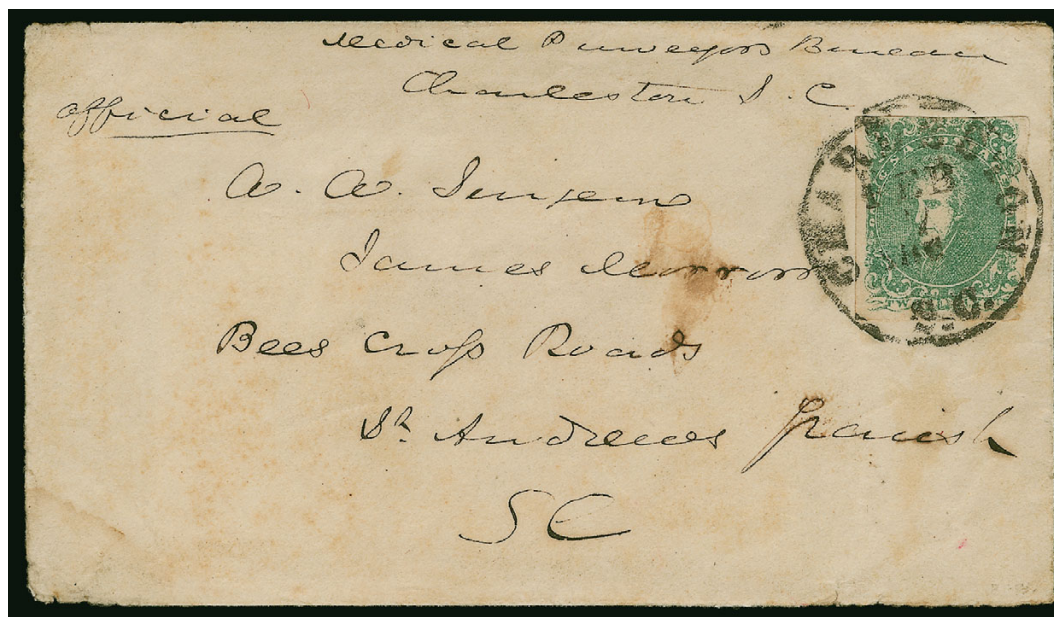 Medical Purveyors Bureau
Charleston S. C.
Official
A. A. Surgeon
James Morrow
Bees Cross Roads
St Andrews Parish
SC
CHARLESTON
FEB
S.C.
CSA POSTAGE
TWO CENTS